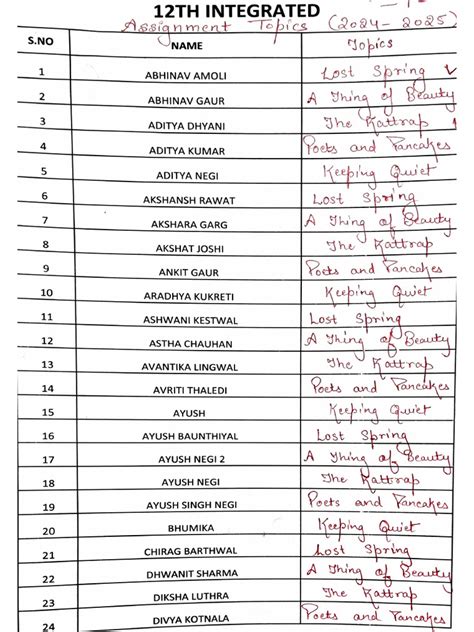 12TH INTEGRATED
Assignment Topics (2024 - 2025)
S.NO NAME Topics
1 ABHINAV AMOLI Lost Spring
2 ABHINAV GAUR A Thing of Beauty
3 ADITYA DHYANI The Rattrap
4 ADITYA KUMAR Poets and Pancakes
5 ADITYA NEGI Keeping Quiet
6 AKSHANSH RAWAT Lost Spring
7 AKSHARA GARG A Thing of Beauty
8 AKSHAT JOSHI The Rattrap
9 ANKIT GAUR Poets and Pancakes
10 ARADHYA KUKRETI Keeping Quiet
11 ASHWANI KESTWAL Lost Spring
12 ASTHA CHAUHAN A Thing of Beauty
13 AVANTIKA LINGWAL The Rattrap
14 AVRITI THALEDI Poets and Pancakes
15 AYUSH Keeping Quiet
16 AYUSH BAUNTHIYAL Lost Spring
17 AYUSH NEGI 2 A Thing of Beauty
18 AYUSH NEGI The Rattrap
19 AYUSH SINGH NEGI Poets and Pancakes
20 BHUMIKA Keeping Quiet
21 CHIRAG BARTHWAL Lost Spring
22 DHWANIT SHARMA A Thing of Beauty
23 DIKSHA LUTHRA The Rattrap
24 DIVYA KOTNALA Poets and Pancakes